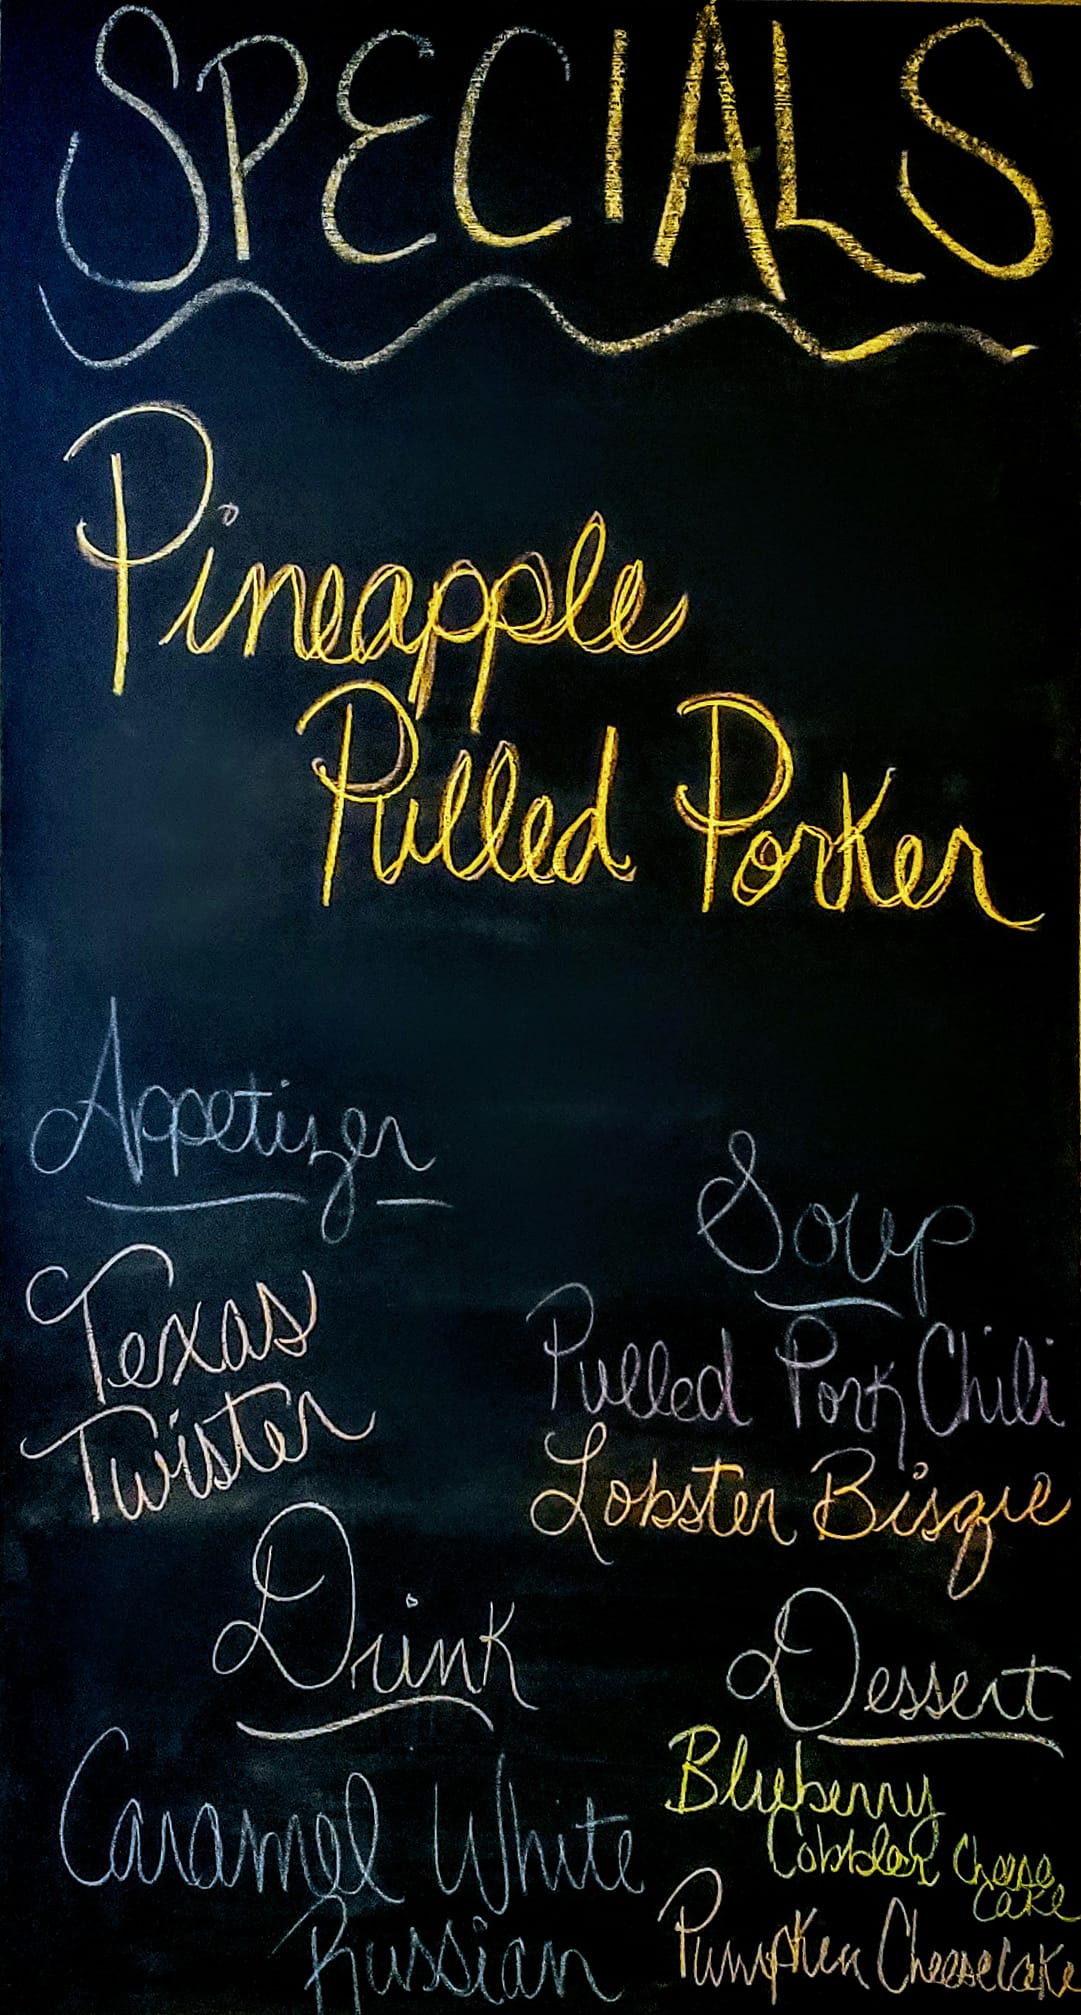 SPECIALS
Pineapple
Pulled Porker
Appetizer
Texas
Twister
Soup
Pulled Pork Chili
Lobster Bisque
Drink
Caramel White
Russian
Dessert
Blueberry
Cobbler Cheese
Cake
Pumpkin Cheesecake